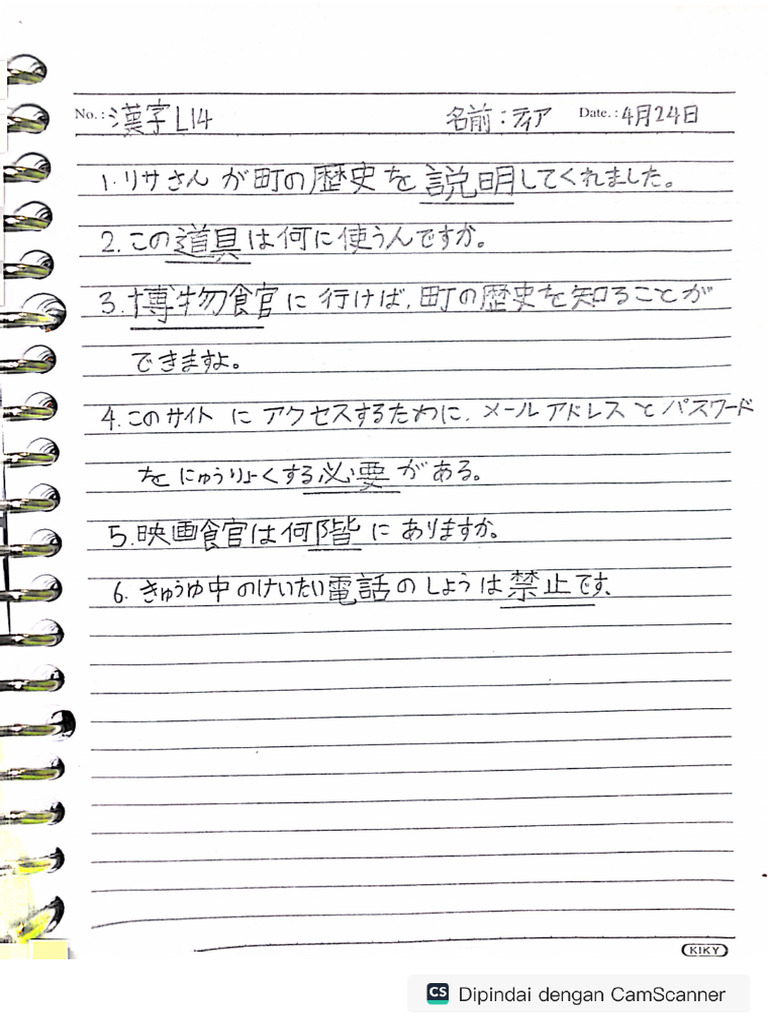 No.: 漢字 L14 名前：ティア Date.: 4月24日
1. リサさんが町の歴史を説明してくれました。
2. この道具は何に使うんですか。
3. 博物館に行けば、町の歴史を知ることが
できますよ。
4. このサイトにアクセスするために、メールアドレスとパスワード
をにゅうりょくする必要がある。
5. 映画館は何階にありますか。
6. きゅうゆ中のけいたい電話のしようは禁止です、
KIKY
CS Dipindai dengan CamScanner